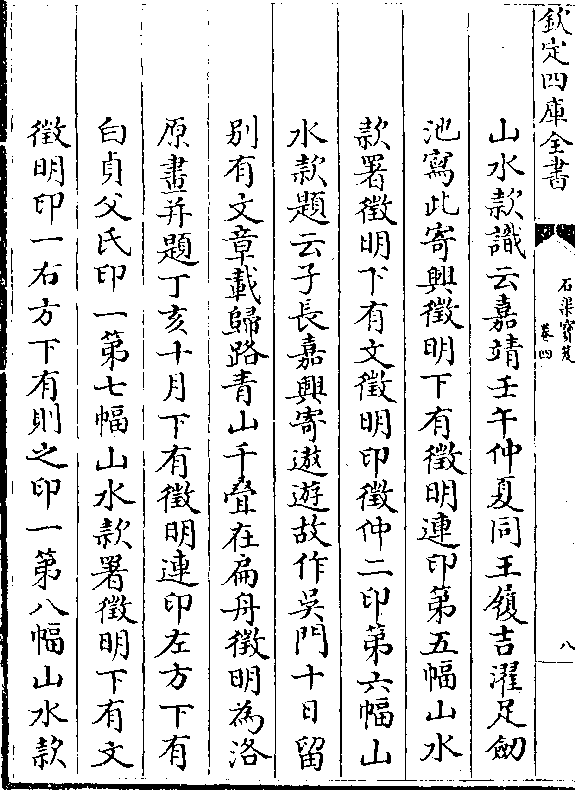 欽定四庫全書
石渠寶笈
卷四
八
山水款識云嘉靖壬午仲夏同王履吉濯足劒
池寫此寄興徵明下有徵明連印第五幅山水
款署徵明下有文徵明印徵仲二印第六幅山
水款題云子長嘉興寄遨遊故作吳門十日留
别有文章載歸路青山千疊在扁舟徵明為洛
原畫并題丁亥十月下有徵明連印左方下有
白貞父氏印一第七幅山水款署徵明下有文
徵明印一右方下有則之印一第八幅山水款